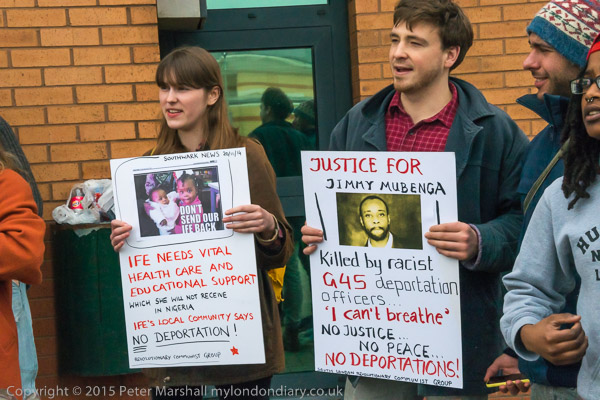 SOUTHWARK NEWS 20/11/14
DON'T
SEND OUR
IFE BACK
IFE NEEDS VITAL
HEALTH CARE AND
EDUCATIONAL SUPPORT
WHICH SHE WILL NOT RECEIVE
IN NIGERIA
IFE'S LOCAL COMMUNITY SAYS
NO DEPORTATION!
REVOLUTIONARY COMMUNIST GROUP
JUSTICE FOR
JIMMY MUBENGA
Killed by racist
G4S deportation
officers...
'I can't breathe'
NO JUSTICE...
NO PEACE...
NO DEPORTATIONS!
SOUTH LONDON REVOLUTIONARY COMMUNIST GROUP
HU
Copyright © 2015 Peter Marshall mylondondiary.co.uk